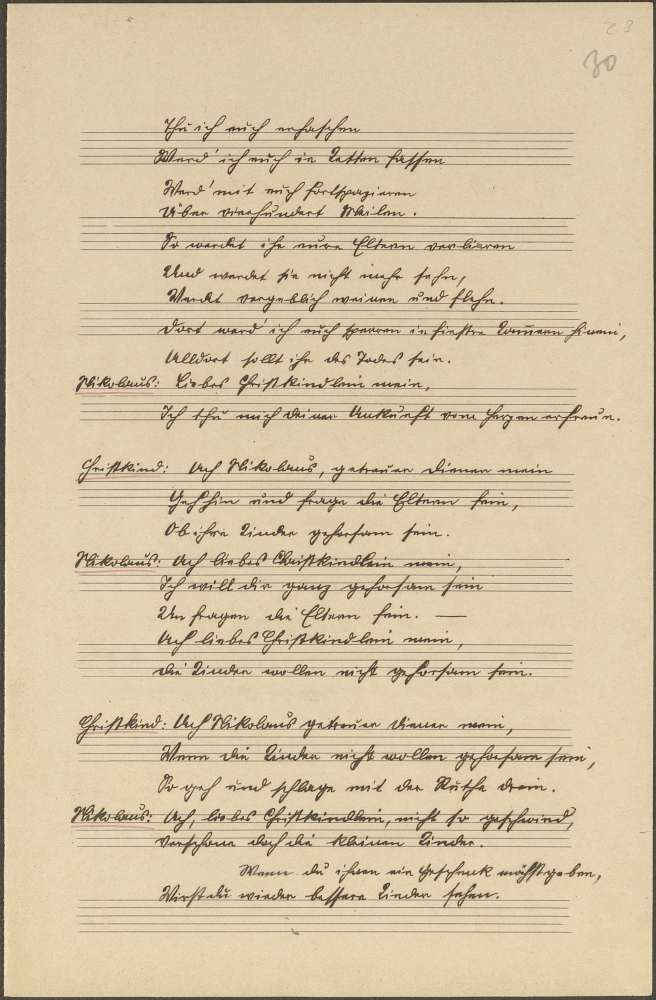 23
30
Thu ich euch erhaschen
Werd' ich euch in Ketten fassen
Werd' mit euch fortspazieren
Über vierhundert Meilen.
So werdet ihr eure Eltern verlieren
Und werdet sie nicht mehr sehn,
Werdet vergeblich weinen und flehn.
Dort werd' ich euch sperren in finstre Kam̅ern hinein,
Alldort sollt ihr des Todes sein.
Nikolaus: Liebes Christkindlein mein,
Ich thu mich deiner Ankunft vom Herzen erfreun.
Christkind: Ach Nikolaus, getreuer Diener mein
Geh hin und frage die Eltern fein,
Ob ihre Kinder gehorsam sein.
Nikolaus: Ach liebes Christkindlein mein,
Ich will dir ganz gehorsam sein
Um fragen die Eltern fein. —
Ach liebes Christkindlein mein,
die Kinder wollen nicht gehorsam sein.
Christkind: Ach Nikolaus getreuer Diener mein,
Wenn die Kinder nicht wollen gehorsam sein,
So geh und schlage mit der Ruthe drein.
Nikolaus: Ach, liebes Christkindlein, nicht so geschwind,
Verschone doch die kleinen Kinder.
Wenn du ihnen ein Geschenk möchst geben,
Wirst du wieder bessere Kinder sehen.